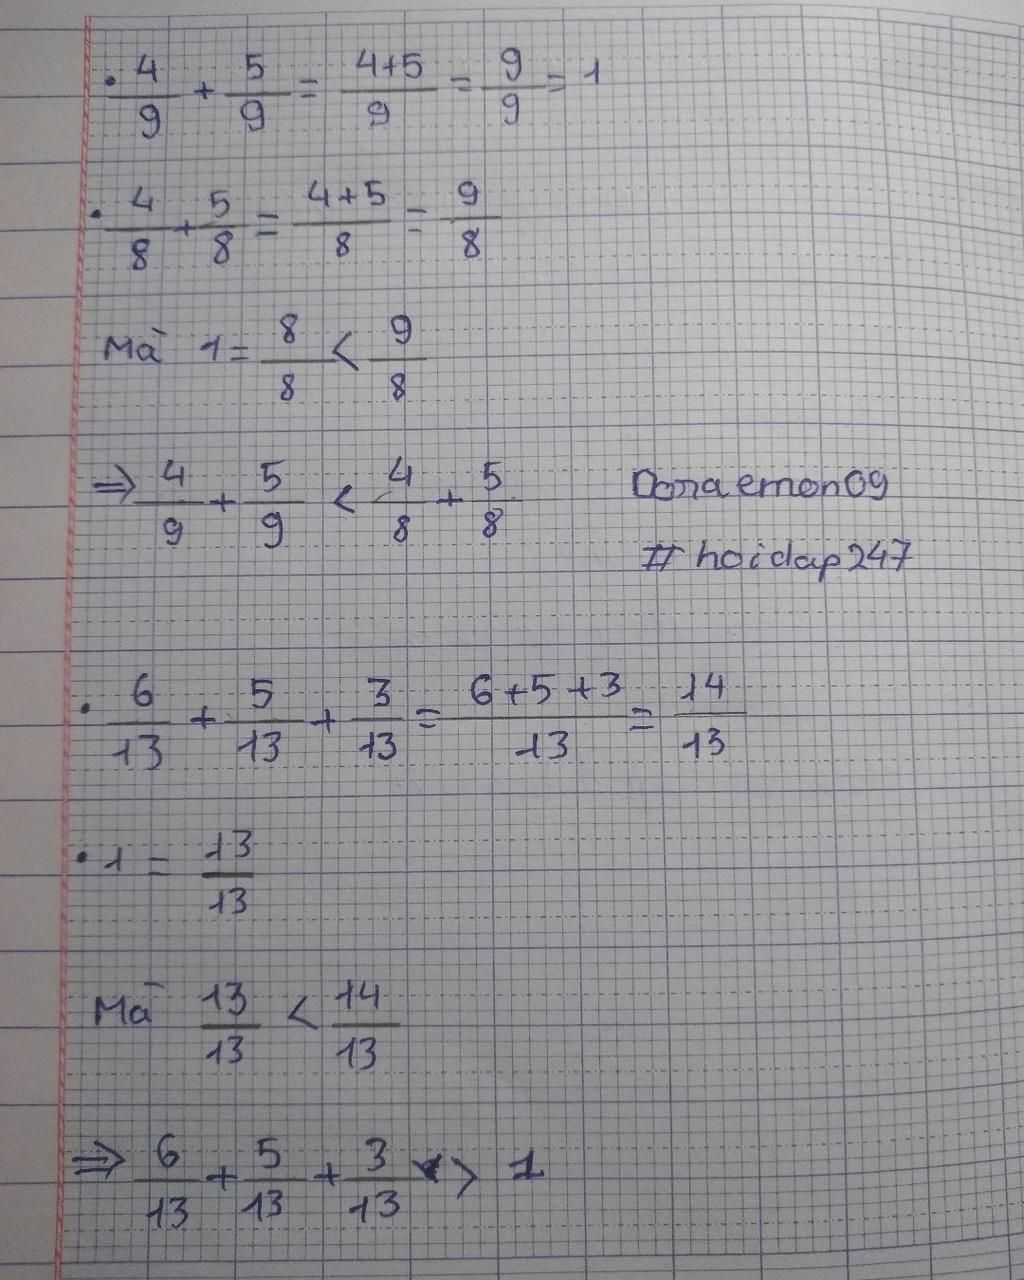 • 4/9 + 5/9 = 4+5/9 = 9/9 = 1
• 4/8 + 5/8 = 4+5/8 = 9/8
Mà 1 = 8/8 < 9/8
⇒ 4/9 + 5/9 < 4/8 + 5/8
Doraemon09
# hoidap247
• 6/13 + 5/13 + 3/13 = 6+5+3/13 = 14/13
• 1 = 13/13
Mà 13/13 < 14/13
⇒ 6/13 + 5/13 + 3/13 > 1